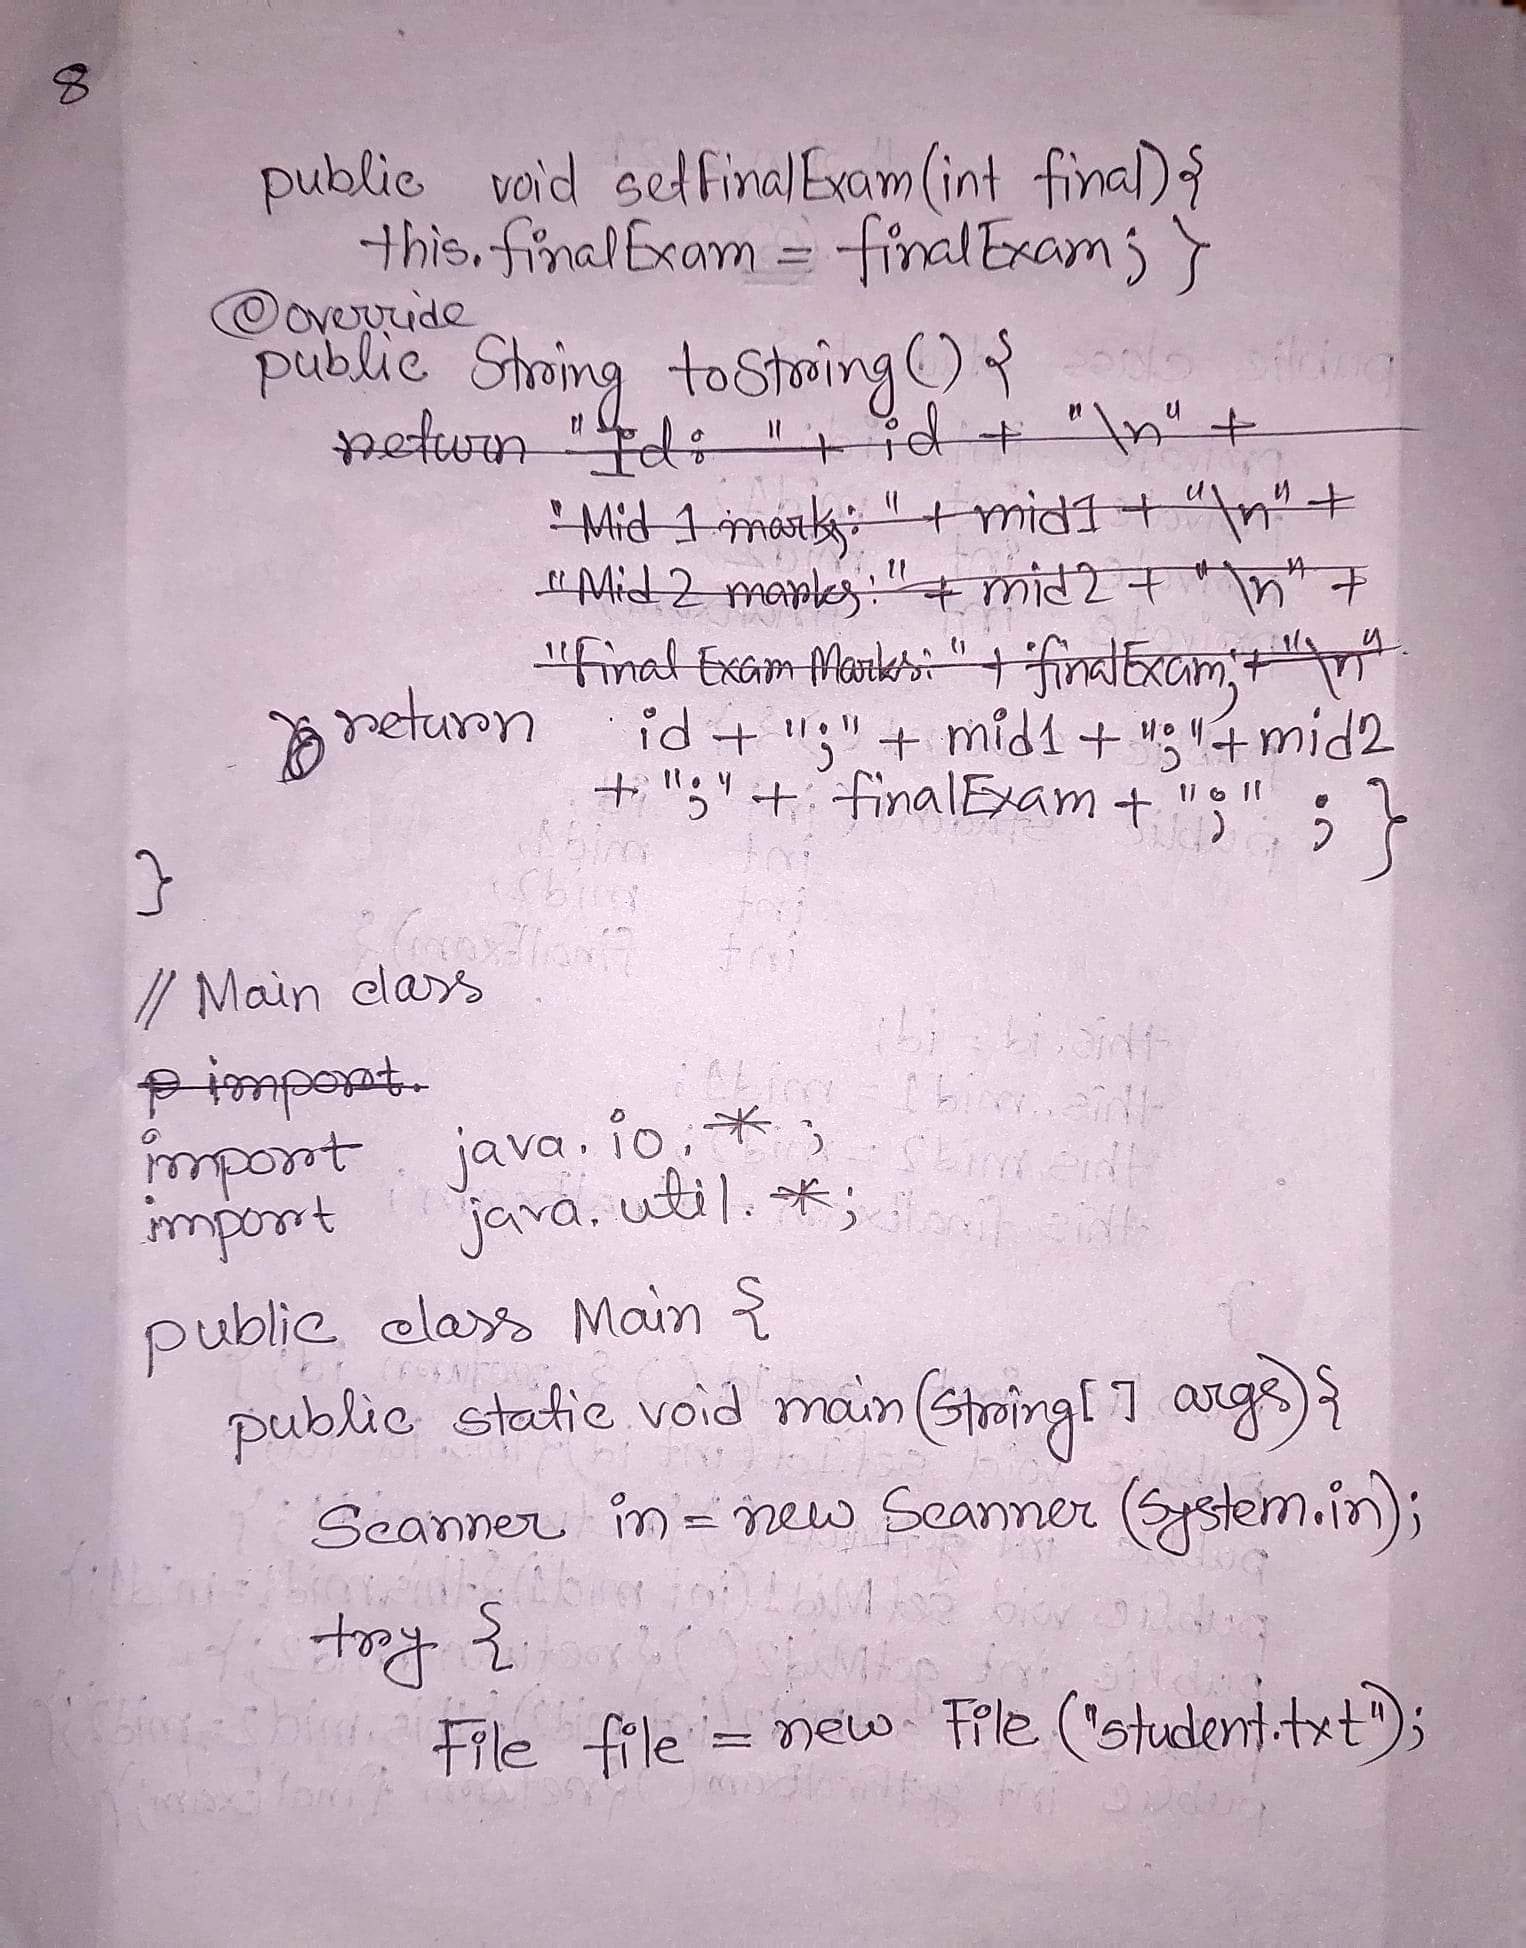 8
public void setFinalExam(int final){
this.finalExam = finalExam; }
@override
public String toString() {
return "Id: " + id + "\n" +
"Mid 1 marks: " + mid1 + "\n" +
"Mid 2 marks: " + mid2 + "\n" +
"Final Exam Marks: " + finalExam; + "\n"
return id + ";" + mid1 + ";" + mid2
+ ";" + finalExam + ";" ; }
}
// Main class
p import.
import java.io.*;
import java.util.*;
public class Main {
public static void main(String[] args){
Scanner in = new Scanner (System.in);
try {
File file = new File ("student.txt");